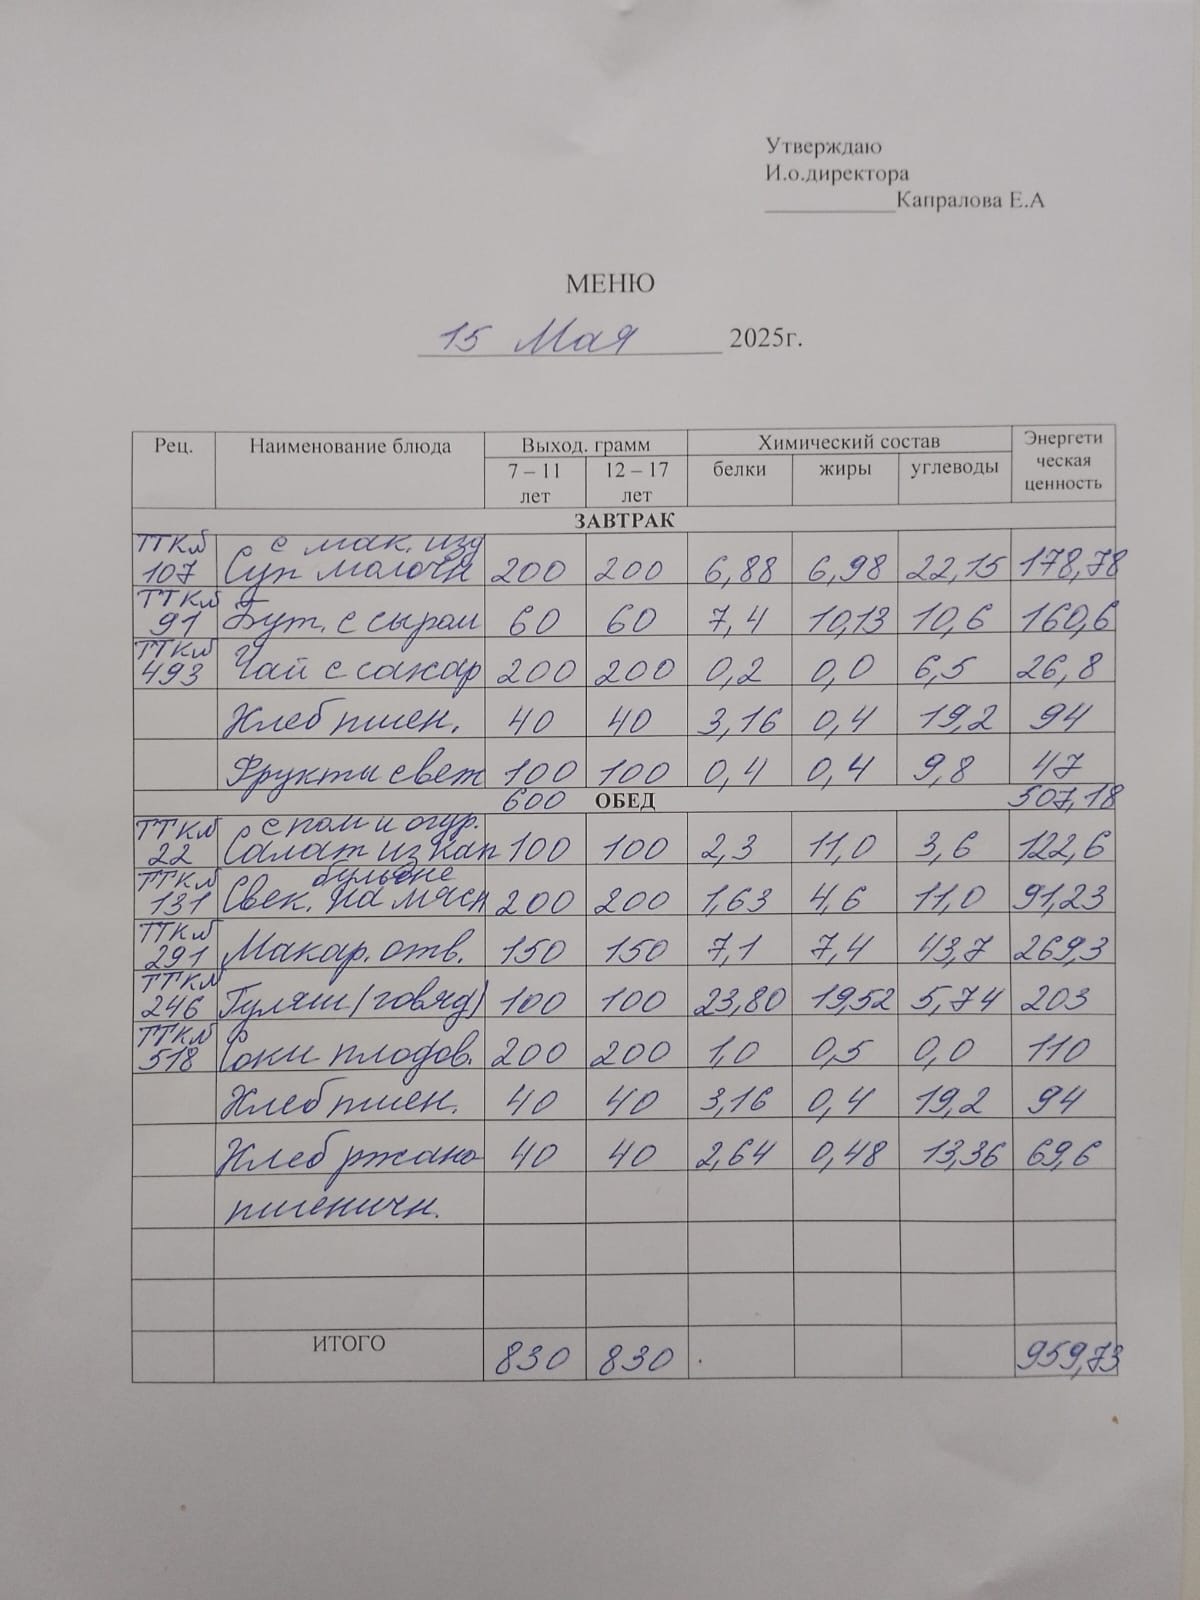 Утверждаю
И.о.директора
____________Капралова Е.А
МЕНЮ
15 Мая 2025г.
Рец. Наименование блюда Выход. грамм Химический состав Энергети
7 – 11 12 – 17 белки жиры углеводы ческая
лет лет ценность
ЗАВТРАК
ТТК№ с мак. изд
107 Суп молочн 200 200 6,88 6,98 22,15 178,78
ТТК№
91 Бут. с сыром 60 60 7,4 10,13 10,6 160,6
ТТК№
493 Чай с сахар 200 200 0,2 0,0 6,5 26,8
Хлеб пшен. 40 40 3,16 0,4 19,2 94
Фрукты свеж 100 100 0,4 0,4 9,8 47
600 ОБЕД 507,18
ТТК№ с пом и огур.
22 Салат из кап 100 100 2,3 11,0 3,6 122,6
ТТК№ бульоне
131 Свек. на мясн 200 200 1,63 4,6 11,0 91,23
ТТК№
291 Макар. отв. 150 150 7,1 7,4 43,7 269,3
ТТК№
246 Гуляш (говяд) 100 100 23,80 19,52 5,74 203
ТТК№
518 Соки плодов. 200 200 1,0 0,5 0,0 110
Хлеб пшен. 40 40 3,16 0,4 19,2 94
Хлеб ржано 40 40 2,64 0,48 13,36 69,6
пшеничн.
ИТОГО 830 830 959,73